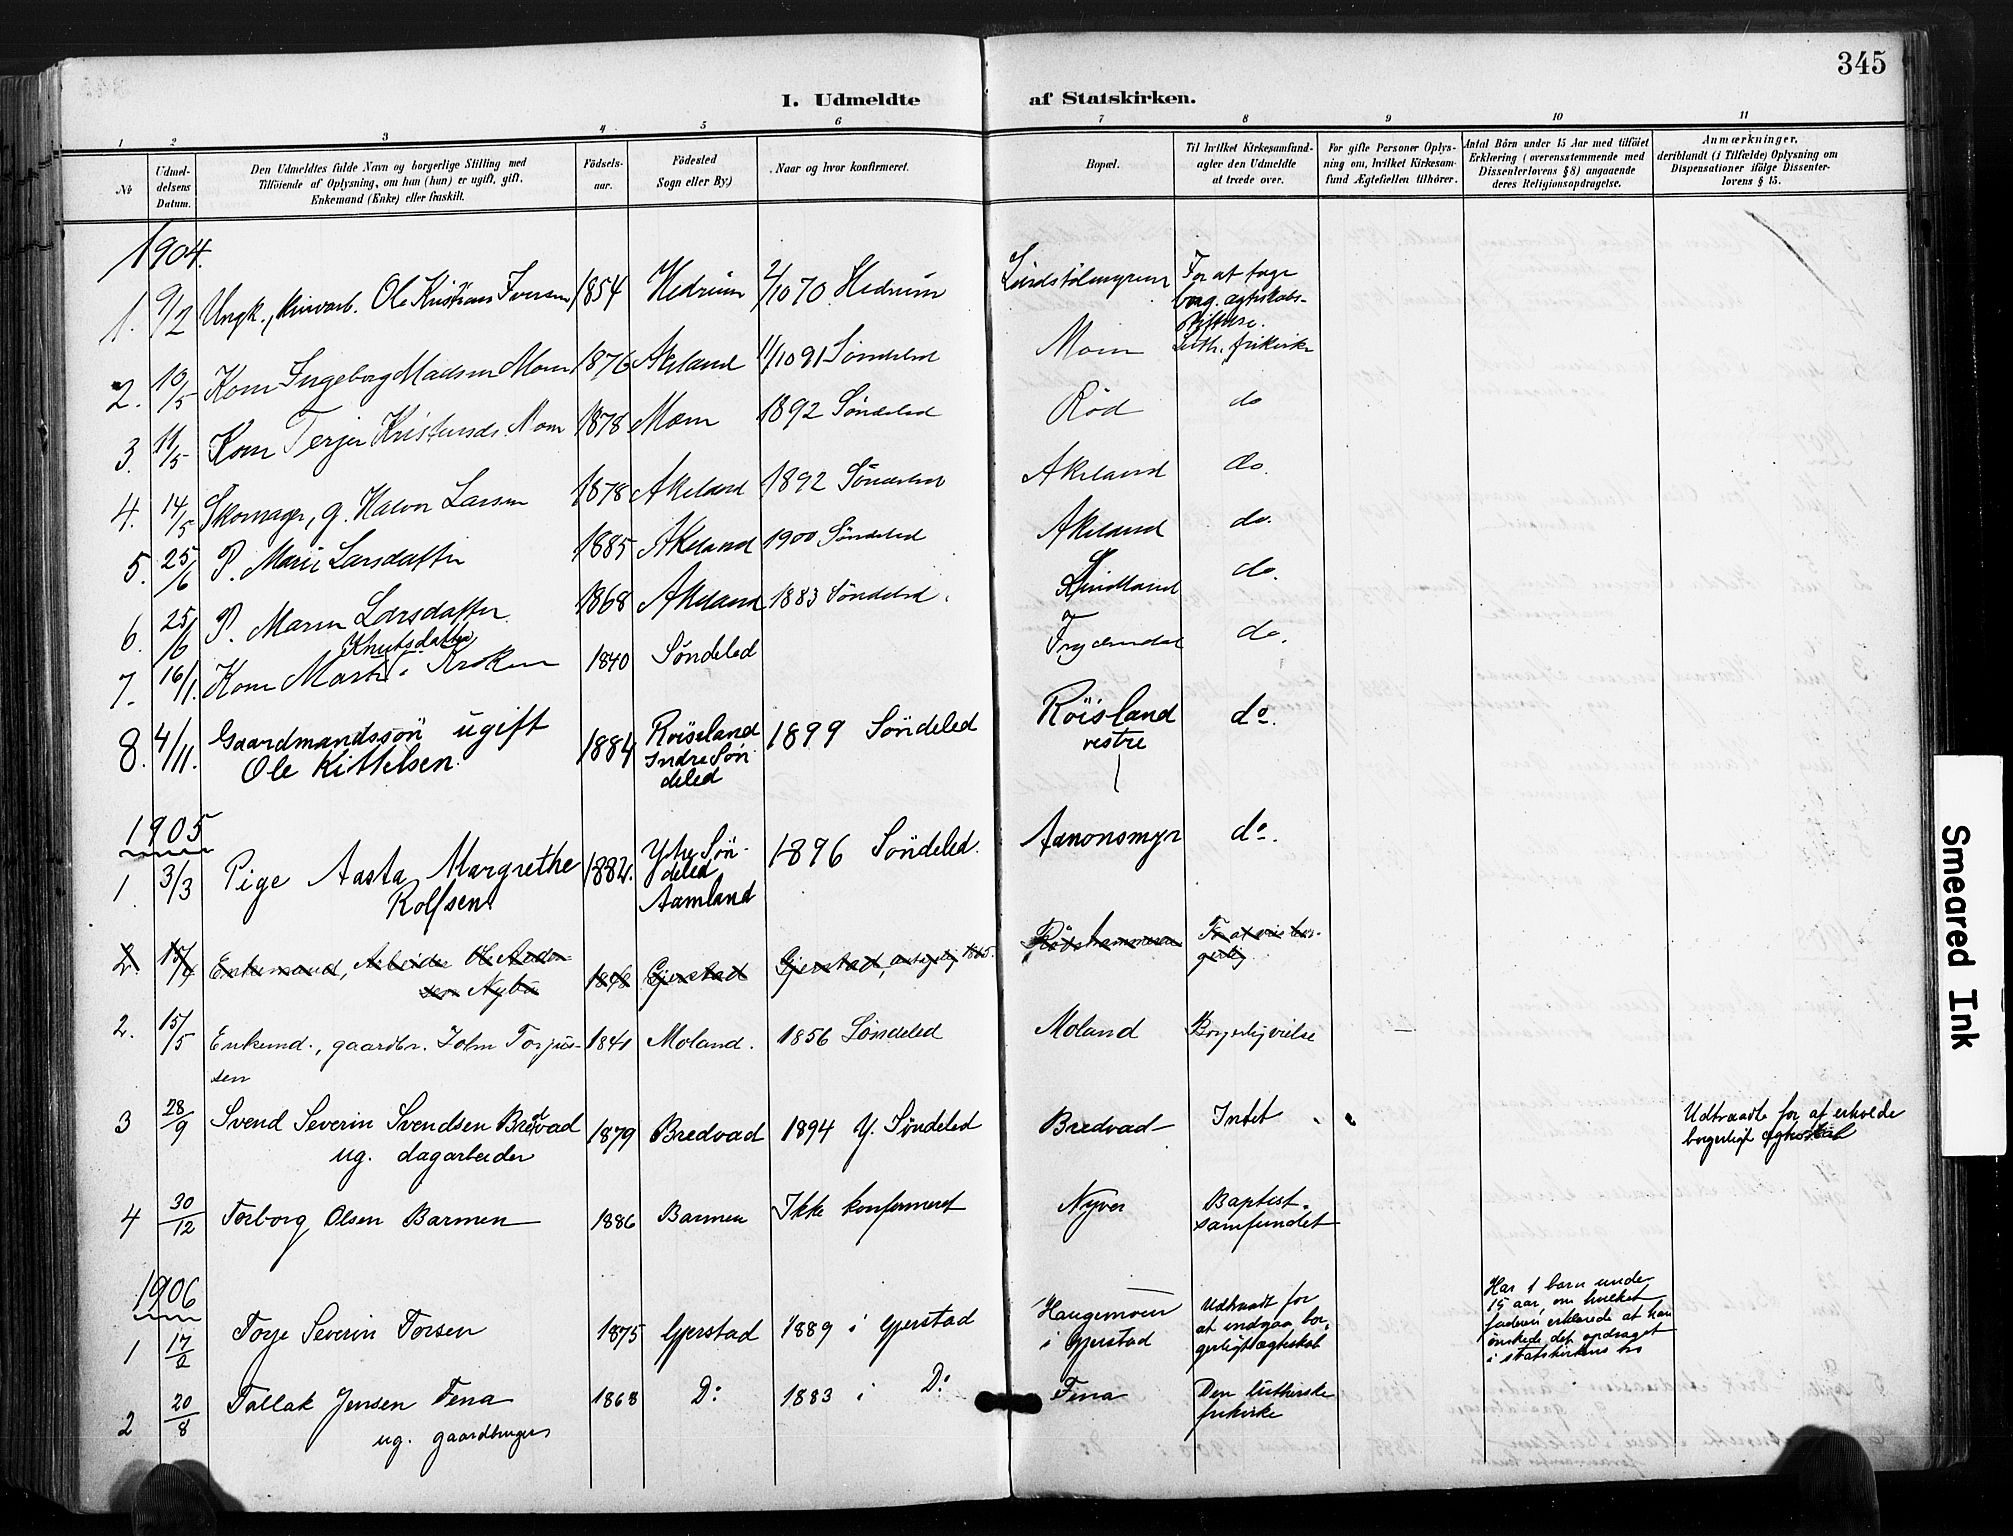 345
I. Udmeldte af Statskirken.
1 2 3 4 5 6 7 8 9 10 11
No
Udmeldelsens Datum.
Den Udmeldtes fulde Navn og borgerlige Stilling med
Tilføiende af Oplysning, om han (hun) er ugift, gift,
Enkemand (Enke) eller fraskilt.
Fødselsaar.
Fødested
Sogn eller By.)
Naar og hvor konfirmeret.
Bopæl.
Til hvilket Kirkesamfund
agter den Udmeldte
at træde over.
For gifte Personer Oplys-
ning om, hvilket Kirkesam-
fund Ægtefællen tilhører.
Antal Börn under 15 Aar med tilföiet
Erklæring (overensstemmende med
Dissenterlovens § 8) angaaende
deres Religionsopdragelse.
Anmærkninger,
deriblandt (i Tilfælde) Oplysning om
Dispensationer ifölge Dissenter-
lovens § 15.
1904.
1. 9/2 Ungk., Ole Kristian Iversen 1854 Hedrum 2/10 70 Hedrum For at tage
borg. ægteskabs-
2. 10/5 Kone Ingeborg Madsen Moen 1876 Akeland 11/10 91 Søndeled Moen Luth. frikirke
3. 11/5 Kone Terjer Kristensdr. Moen 1878 Moen 1892 Søndeled Röd do
4. 14/5 Skomager, g. Halvor Larsen 1878 Akeland 1892 Søndeled Akeland do.
5. 25/6 P. Marie Larsdatter 1885 Akeland 1900 Søndeled Akeland do.
6. 25/6 P. Maren Larsdatter 1868 Akeland 1883 Søndeled. Lindland do.
Knutsdatter
7. 16/1. Kone Marthe Kroken 1840 Søndeled do.
8. 4/11. Gaardmandssön ugift
Ole Kittelsen. 1884 Röiseland
Indre Søn
deled 1899 Søndeled Röisland
vestre do.
1905
1. 3/3 Pige Aasta Margrethe
Rolfsen 1882. Ytre Søn-
deled
Aamland 1896 Søndeled. Aanonsmyr do.
2 15/4 Enkemand, Arbeider Ole
sen Nybu 1848 Gjerstad Gjerstad, antagelig 1865.
2. 15/5 Enkemd., gaardbr. John Torjus-
sen 1841 Moland. 1856 Søndeled Moland Borgerlig vielse
3 28/9 Svend Severin Svendsen Bredvad
ug. dagarbeider 1879 Bredvad 1894 Y. Søndeled Bredvad Intet Udtraadt for at erholde
borgerligt ægteskab
4 30/12 Torborg Olsen Barmen 1886 Barmen Ikke konfirmeret Nyver Baptist-
samfundet
1906
1 17/2 Torje Severin Torsen 1875 Gjerstad 1889 i Gjerstad Haugemoen
i Gjerstad Udtraadt for
at indgaa bor-
gerligt ægteskab Har 1 barn under
15 aar, om hvilket
faderen erklærede at han
ønskede det opdraget
i statskirkens tro
2 20/8 Tallak Jensen Fena
ug. gaardbruger 1868 Do 1883 i Do Fena Den lutherske
frikirke
Smeared Ink